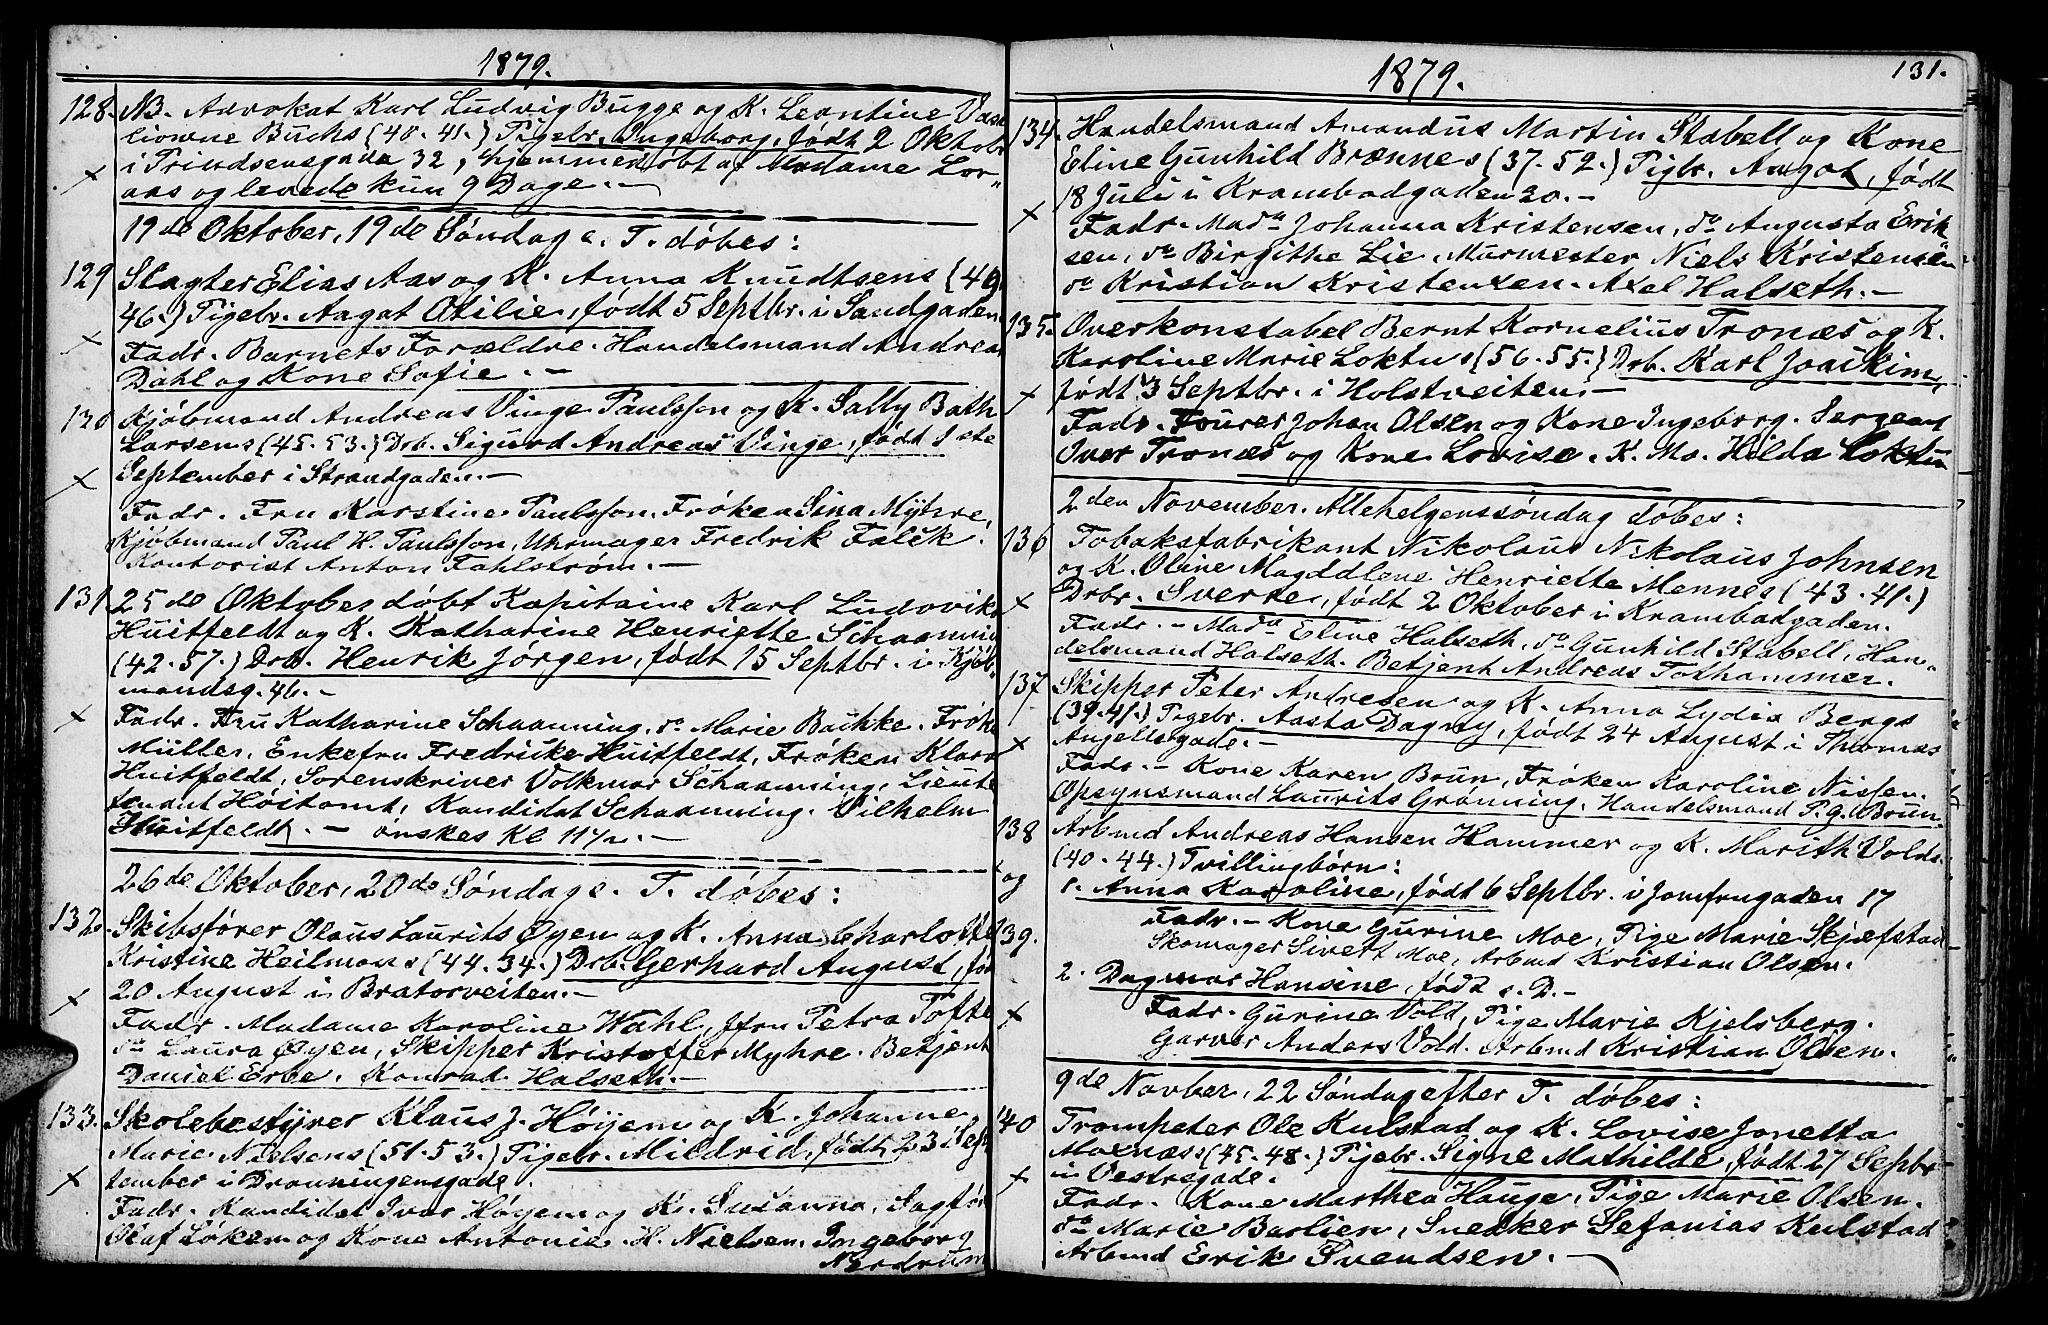 1879.
128. NB. Advokat Karl Ludvig Bugge og K. Leontine Vase
liovne Buchs (40.41.) Pigebr. Ingeborg, født 2 Oktobr
i Prindsensgade 32, hjemmedøbt af Madame Lor-
aas og levede kun 9 Dage. —
19de Oktober, 19de Søndag e. T. døbes:
129 Slagter Elias Aas og K. Anna Knudtsens (49.
46.) Pigebr. Aagot Otilie, født 5 Septbr. i Sandgaden
Fadr. Barnets Forældre. Handelsmand Andreas
Dahl og Kone Sofie. —
130 Kjøbmand Andreas Vinge Paulsson og K. Sally Bath
Larsens (45.53.) Drb. Sigurd Andreas Vinge, født 1ste
September i Strandgaden. —
Fadr. Fru Karstine Paulsson. Frøken Sina Myhre,
Kjøbmand Paul H. Paulsson, Uhrmager Fredrik Falck.
Kontorist Anton Fahlstrøm. —
131 25de Oktober døbt Kapitaine Karl Ludovik
Huitfeldt og K. Katharine Henriette Schaanning
(42.57.) Drb. Henrik Jørgen, født 15 Septbr. i Kjøb-
mandsg. 46. —
Fadr. Fru Katharine Schaanning, do Marie Bachke. Frøke
Müller, Enkefru Fredricke Huitfeldt, Frøken Klara
Huitfeldt, Sorenskriver Volkmar Schaanning, Lieute
tenant Høitomt, Kandidat Schaanning. Vilhelm
Huitfeldt. — ønskes Kl 11½. —
26de Oktober, 20de Søndag e. T. døbes:
132. Skibsfører Olaus Laurits Øyen og K. Anna Charlotte
Kristine Heilmans (44.34.) Drb. Gerhard August, fød
20 August i Bratorveiten. —
Fadr. Madame Karoline Wahl, Jfru Petra Tofte
do Laura Øyen, Skipper Kristoffer Myhre. Betjent
Daniel Erbe. Konrad Halseth. —
133. Skolebestyrer Klaus J. Høyem og K. Johanne
Marie Nielsens (51.53.) Pigebr. Mildrid, født 23 i Sep
tember i Dronningensgade.
Fadr. Kandidat Ivar Høyem og K. Susanna, Sagfør
Olaf Løkem og Kone Antonie. H. Nielsen. Ingeborg
Nerdrum
1879.
131.
134. Handelsmand Amandus Martin Stabell og Kone
Eline Gunhild Brænnes (37.52.) Pigbr. Aagot, født
18 Juli i Krambodgaden 20. —
Fadr. Mada Johanna Kristensen, do Augusta Erik-
sen, do Birgithe Lie. Murmester Niels Kristensen
do Kristian Kristensen. Axel Halseth. —
135. Overkonstabel Bernt Kornelius Tronæs og K.
Karoline Marie Loktus (56.55.) Drb. Karl Joackim,
født 3 Septbr. i Holstveiten. —
Fadr. Fourer Johan Olsen og Kone Ingeborg. Sergeant
Iver Tronæs og Kone Lovise. K. Ma. Hilda Loktu
2den November. Allehelgenssøndag døbes:
136 Tobaksfabrikant Nikolaus Nikolaus Johnsen
og K. Oline Magdalene Henriette Mennes (43.41.)
Drbr. Sverre, født 2 Oktober i Krambodgaden.
Fadr. — Mada Eline Halseth, do Gunhild Stabell, Han-
delsmand Halseth. Betjent Andreas Tothammer.
137 Skipper Peter Andresen og K. Anna Lydia Bergs
(39.41.) Pigebr. Aasta Dagny, født 24 August i Thomas
Angellsgade. —
Fadr. — Kone Karen Brun, Frøken Karoline Nissen.
Opsynsmand Laurits Grønning. Handelsmand P. G. Brun.
138 Arbmd Andreas Hansen Hammer og K. Marith Volds
(40.44.) Tvillingbørn:
og 1. Anna Karoline, født 6 Septbr. i Jomfrugaden 17
Fadr. — Kone Gurine Moe, Pige Marie Skjefstad
139. Skomager Sivert Moe, Arbmd Kristian Olsen.
2. Dagmar Hansine, født s. D. —
Fadr. Gurine Vold, Pige Marie Kjelsberg.
Garver Anders Vold. Arbmd Kristian Olsen.
9de Novber, 22 Søndag efter T. døbes:
140 Trompeter Ole Kulstad og K. Lovise Jonetta
Moenæs (45.48.) Pigebr. Signe Mathilde, født 27 Sepbr
i Vestregade.
Fadr. Kone Marthea Hauge, Pige Marie Olsen.
do Marie Barlien, Snedker Sefanias Kulstad
Arbmd Erik Svendsen. —